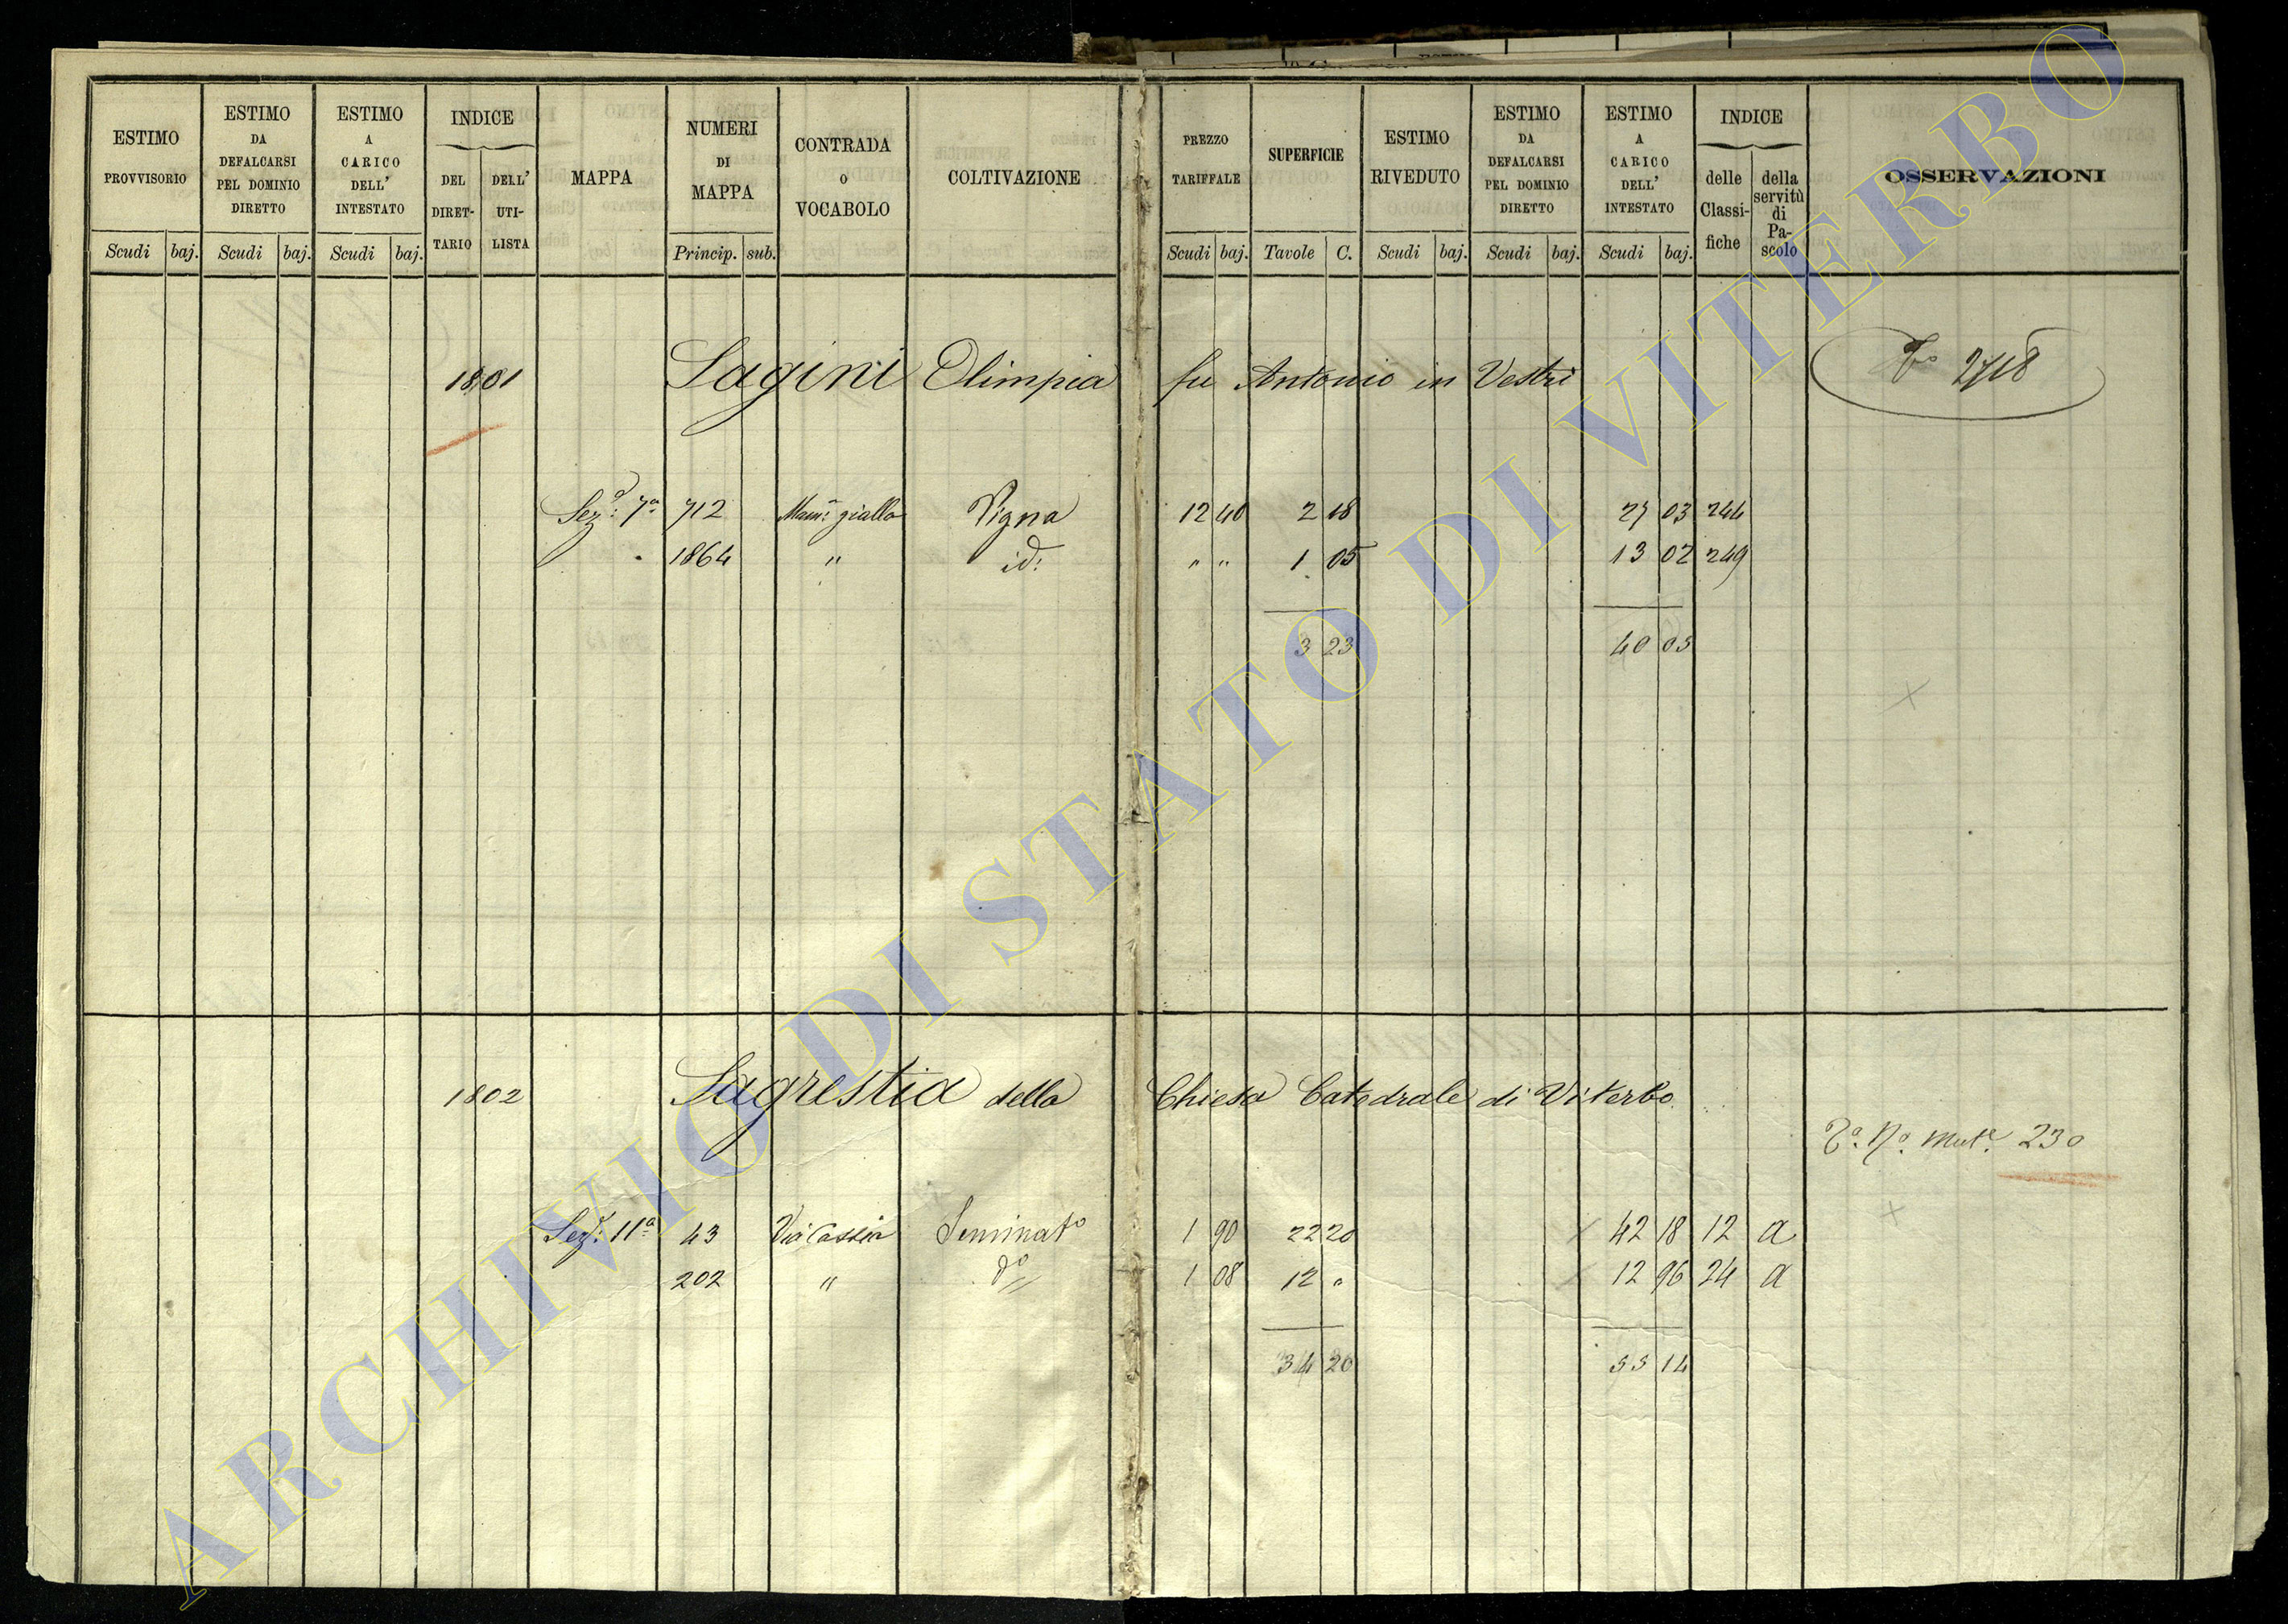 ESTIMO PROVVISORIO Scudi baj.
ESTIMO DA DEFALCARSI PEL DOMINIO DIRETTO Scudi baj.
ESTIMO A CARICO DELL' INTESTATO Scudi baj.
INDICE DEL DIRET-TARIO DELL' UTI-LISTA
MAPPA
NUMERI DI MAPPA Princip. sub.
CONTRADA O VOCABOLO
COLTIVAZIONE
PREZZO TARIFFALE Scudi baj.
SUPERFICIE Tavole C.
ESTIMO RIVEDUTO Scudi baj.
ESTIMO DA DEFALCARSI PEL DOMINIO DIRETTO Scudi baj.
ESTIMO A CARICO DELL' INTESTATO Scudi baj.
INDICE delle Classi-fiche della servitù di Pa-scolo
OSSERVAZIONI
1801 Sagini Olimpia fu Antonio in Vestri 2718
Sez.e 7a 712 Mam.a gialla Vigna 12 40 2 18 27 03 244
" 1864 " id: " " 1 05 13 02 249
3 23 40 05
1802 Sagrestia della Chiesa Catedrale di Viterbo
No. Mut.e 230
Sez.e 11a 43 Via Cassia Seminato 1 90 22 20 42 18 12 a
202 " do 1 08 12 " 12 96 24 a
34 20 55 14
ARCHIVIO DI STATO DI VITERBO